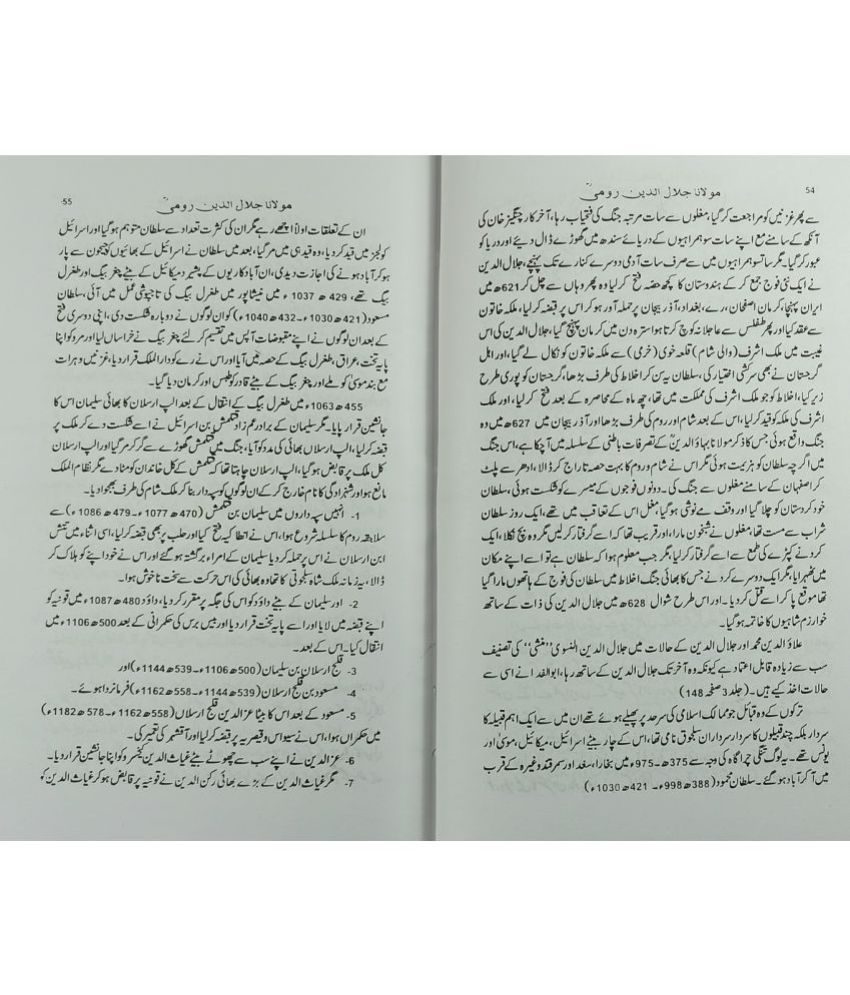 54
مولانا جلال الدین رومیؒ
سے پھر غزنیں کو مراجعت کر گیا، مغلوں سے سات مرتبہ جنگ کی فتحیاب رہا، آخر کار چنگیز خان کی
آنکھ کے سامنے مع اپنے سات سو ہمراہیوں کے دریائے سندھ میں گھوڑے ڈال دیئے اور دریا کو
عبور کر گیا۔ مگر ساتسو ہمراہیوں میں سے صرف سات آدمی دوسرے کنارے تک پہنچے، جلال الدین
نے ایک نئی فوج جمع کر کے ہندوستان کا کچھ حصہ فتح کر لیا وہ پھر وہاں سے چل کر 621ھ میں
ایران پہنچا، کرمان اصفہان، رے، بغداد، آذر بیجان پر حملہ آور ہو کر اس پر قبضہ کر لیا، ملکہ خاتون
سے عقد کیا اور پھر طفلس سے عاجلانہ کوچ کرتا ہوا سترہ دن میں کرمان پہنچ گیا، جلال الدین کی اس
غیبت میں ملک اشرف (والی شام) قلعہ خوی (خرمی) سے ملکہ خاتون کو نکال لے گیا، اور اہل
گرجستان نے بھی سرکشی اختیار کی، سلطان یہ سن کر اخلاط کی طرف بڑھا، گرجستان کو پوری طرح
زیر کیا، اخلاط کو جو ملک اشرف کی مملکت میں تھا، چھ ماہ کے محاصرہ کے بعد فتح کر لیا، اور ملک
اشرف کی ملکہ کو قید کر لیا، اس کے بعد شام اور روم کی طرف بڑھا اور آذر بیجان میں 627ھ میں وہ
جنگ واقع ہوئی جس کا ذکر مولانا بہاؤ الدینؒ کے تصرفات باطنی کے سلسلہ میں آ چکا ہے، اس جنگ
میں اگر چہ سلطان کو ہزیمت ہوئی مگر اس نے شام و روم کا بہت حصہ تاراج کر ڈالا، ادھر سے پلٹ
کر اصفہان کے سامنے مغلوں سے جنگ کی۔ دونوں فوجوں کے میسرے کو شکست ہوئی، سلطان
خود کردستان کو چلا گیا اور وقف مے نوشی ہو گیا، مغل اس کے تعاقب میں تھے، ایک روز سلطان
شراب سے مست تھا، مغلوں نے شبخون مارا، اور قریب تھا کہ اسے گرفتار کر لیں مگر وہ بچ نکلا، ایک
کرد نے کپڑے کی طمع سے اسے گرفتار کر لیا، مگر جب معلوم ہوا کہ سلطان ہے تو اسے اپنے مکان
میں ٹھہرایا، مگر ایک دوسرے کرد نے جس کا بھائی جنگ اخلاط میں سلطان کی فوج کے ہاتھوں مارا گیا
تھا موقع پا کر اسے قتل کر دیا۔ اور اس طرح شوال 628ھ میں جلال الدین کی ذات کے ساتھ
خوارزم شاہیوں کا خاتمہ ہو گیا۔
علاؤ الدین محمد اور جلال الدین کے حالات میں جلال الدین النسوی ’’منشی‘‘ کی تصنیف
سب سے زیادہ قابل اعتماد ہے کیونکہ وہ آخر تک جلال الدین کے ساتھ رہا، ابوالفدا نے اسی سے
حالات اخذ کیے ہیں۔ (جلد 3 صفحہ 148)
ترکوں کے وہ قبائل جو ممالک اسلامی کی سرحد پر پھیلے ہوئے تھے ان میں سے ایک اہم قبیلہ کا
سردار بلکہ چند قبیلوں کا سردار سرداران سلجوق نامی تھا، اس کے چار بیٹے اسرائیل، میکائیل، موسیٰ اور
یونس تھے۔ یہ لوگ تنگی چراگاہ کی وجہ سے 375ھ-975ء میں بخارا، سغد اور سمرقند وغیرہ کے قرب
میں آ کر آباد ہو گئے۔ سلطان محمود (388ھ 998ء۔ 421ھ 1030ء)
55
مولانا جلال الدین رومیؒ
ان کے تعلقات اولاً اچھے رہے مگر ان کی کثرت تعداد سے سلطان متوہم ہو گیا اور اسرائیل
کو لنجر میں قید کر دیا، وہ قید ہی میں مر گیا، بعد میں سلطان نے اسرائیل کے بھائیوں کو جیحون سے پار
ہو کر آباد ہونے کی اجازت دیدی، ان آباد کاریوں کے پیشر و میکائیل کے بیٹے چغر بیگ اور طغرل
بیگ تھے، 429ھ 1037ء میں نیشاپور میں طغرل بیگ کی تاجپوشی عمل میں آئی، سلطان
مسعود (421ھ 1030ء۔ 432ھ 1040ء) کو ان لوگوں نے دوبارہ شکست دی، اپنی دوسری فتح
کے بعد ان لوگوں نے اپنے مقبوضات آپس میں تقسیم کر لئے چغر بیگ نے خراساں لیا اور مرو کو اپنا
پایہ تخت، عراق، طغرل بیگ کے حصہ میں آیا اور اس نے رے کو دار الملک قرار دیا، غزنیں و ہرات
مع ہند موسیٰ کو ملے اور چغر بیگ کے بیٹے قادر کو طبس اور کرمان دیا گیا۔
455ھ 1063ء میں طغرل بیگ کے انتقال کے بعد الپ ارسلان کا بھائی سلیمان اس کا
جانشین قرار پایا۔ مگر سلیمان کے برادر عم زاد قتلمش بن اسرائیل نے اسے شکست دے کر ملک پر
قبضہ کر لیا، الپ ارسلاں بھائی کی مدد کو آیا، جنگ میں قتلمش گھوڑے سے گر کر مر گیا اور الپ ارسلان
کل ملک پر قابض ہو گیا، الپ ارسلان چاہتا تھا کہ قتلمش کے کل خاندان کو مٹا دے مگر نظام الملک
مانع ہوا اور شہزادگی کا نام خارج کر کے ان لوگوں کو سپہ دار بنا کر ملک شام کی طرف بھجوا دیا۔
1- انہیں سپہ داروں میں سلیمان بن قتلمش (470ھ 1077ء۔ 479ھ 1086ء) سے
سلاجقہ روم کا سلسلہ شروع ہوا، اس نے انطاکیہ فتح کیا اور حلب پر بھی قبضہ کر لیا، اسی اثناء میں تتش
ابن ارسلان نے اس پر حملہ کر دیا سلیمان کے امراء برگشتہ ہو گئے اور اس نے خود اپنے کو ہلاک کر
ڈالا، یہ زمانہ ملک شاہ سلجوقی کا تھا وہ بھائی کی اس حرکت سے سخت ناخوش ہوا۔
2- اور سلیمان کے بیٹے داؤد کو اس کی جگہ پر مقرر کر دیا، داؤد 480ھ 1087ء میں قونیہ کو
اپنے قبضہ میں لایا اور اسے پایہ تخت قرار دیا اور بیس برس کی حکمرانی کے بعد 500ھ 1106ء میں
انتقال کیا۔ اس کے بعد۔
3- قلج ارسلان بن سلیمان (500ھ 1106ء۔ 539ھ 1144ء) اور
4- مسعود بن قلج ارسلان (539ھ 1144ء۔ 558ھ 1162ء) فرمانروا ہوئے۔
5- مسعود کے بعد اس کا بیٹا عز الدین قلج ارسلاں (558ھ 1162ء۔ 578ھ 1182ء)
میں حکمراں ہوا، اس نے سیواس و قیصریہ پر قبضہ کر لیا اور آقشہر کی تعمیر کی۔
6- عز الدین نے اپنے سب سے چھوٹے بیٹے غیاث الدین کیخسرو کو اپنا جانشین قرار دیا۔
7- مگر غیاث الدین کے بڑے بھائی رکن الدین نے قونیہ پر قابض ہو کر غیاث الدین کو